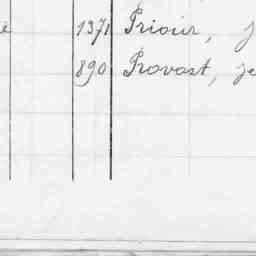 e 1371 Prieur, j
890 Provost, je